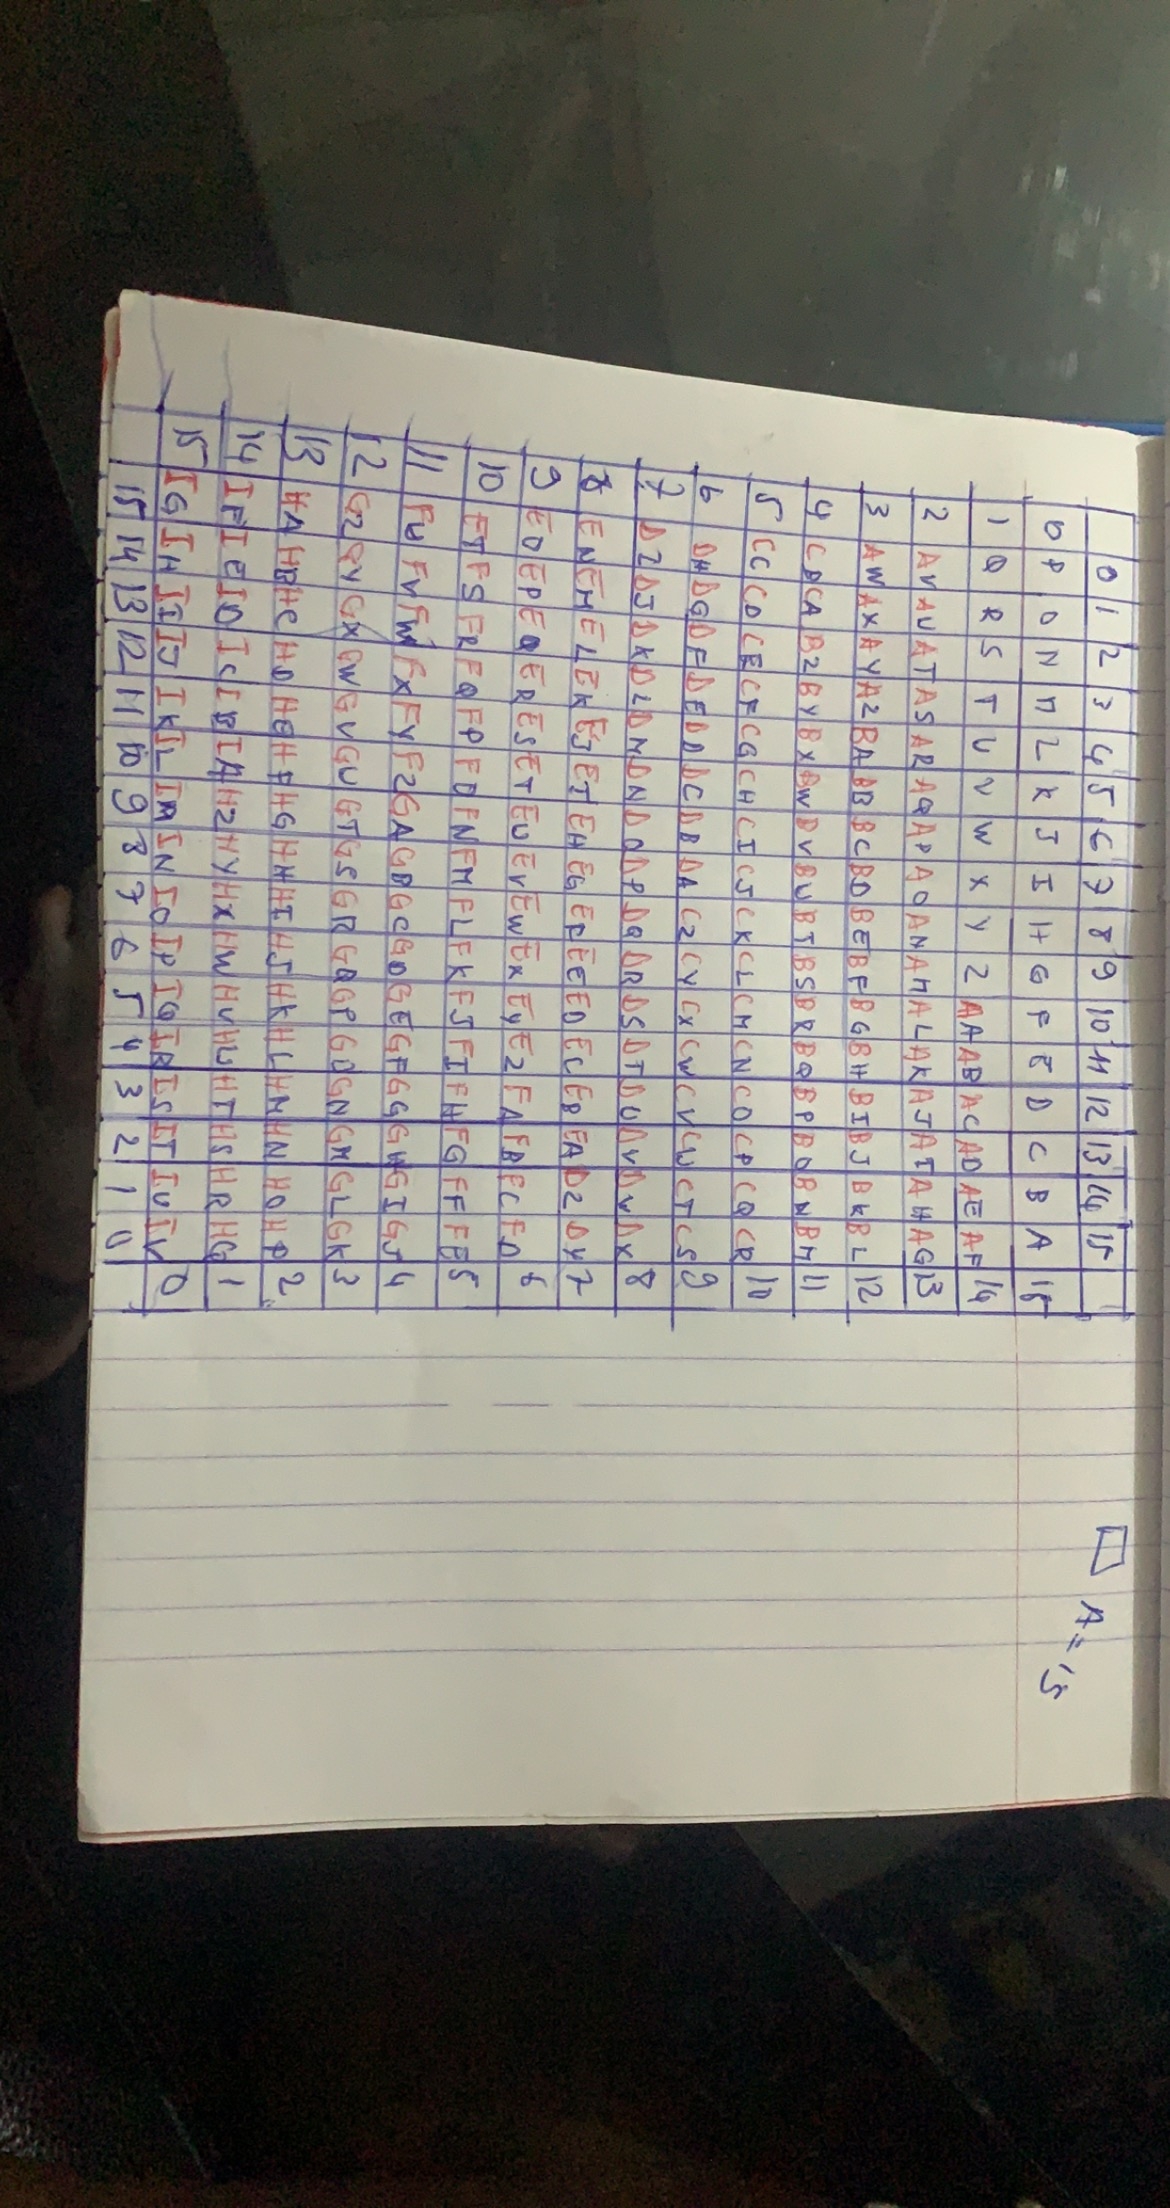 0 1 2 3 4 5 6 7 8 9 10 11 12 13 14 15
0 P O N M L K J I H G F E D C B A 15
1 Q R S T U V W X Y Z AA AB AC AD AE AF 14
2 AV AU AT AS AR AQ AP AO AN AM AL AK AJ AI AH AG 13
3 AW AX AY AZ BA BB BC BD BE BF BG BH BI BJ BK BL 12
4 CB CA BZ BY BX BW BV BU BT BS BR BQ BP BO BN BM 11
5 CC CD CE CF CG CH CI CJ CK CL CM CN CO CP CQ CR 10
6 DH DG DF DE DD DC DB DA CZ CY CX CW CV CU CT CS 9
7 DI DJ DK DL DM DN DO DP DQ DR DS DT DU DV DW DX 8
8 EN EM EL EK EJ EI EH EG EF EE ED EC EB EA DZ DY 7
9 EO EP EQ ER ES ET EU EV EW EX EY EZ FA FB FC FD 6
10 FT FS FR FQ FP FO FN FM FL FK FJ FI FH FG FF FE 5
11 FU FV FW FX FY FZ GA GB GC GD GE GF GG GH GI GJ 4
12 GZ GY GX GW GV GU GT GS GR GQ GP GO GN GM GL GK 3
13 HA HB HC HD HE HF HG HH HI HJ HK HL HM HN HO HP 2
14 IF IE ID IC IB IA HZ HY HX HW HV HU HT HS HR HQ 1
15 IG IH II IJ IK IL IM IN IO IP IQ IR IS IT IU IV 0
15 14 13 12 11 10 9 8 7 6 5 4 3 2 1 0
A = 15